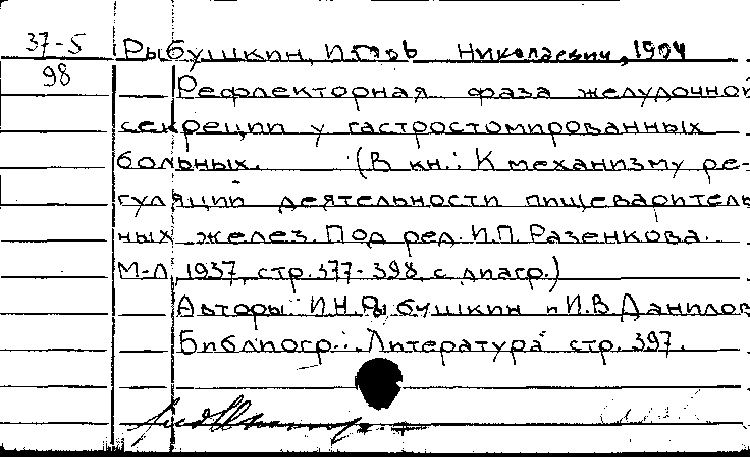 37-5 Рыбушкин, Игорь Николаевич, 1904
98 Рефлекторная фаза желудочной
секреции у гастростомированных
больных. (В кн.: К механизму ре-
гуляции деятельности пищеваритель
ных желез. Под ред. И.П. Разенкова.
М-Л, 1937, стр. 377-398, с диагр.)
Авторы: И.Н. Рыбушкин и И.В. Данилов
Библиогр.: "Литература" стр. 397.